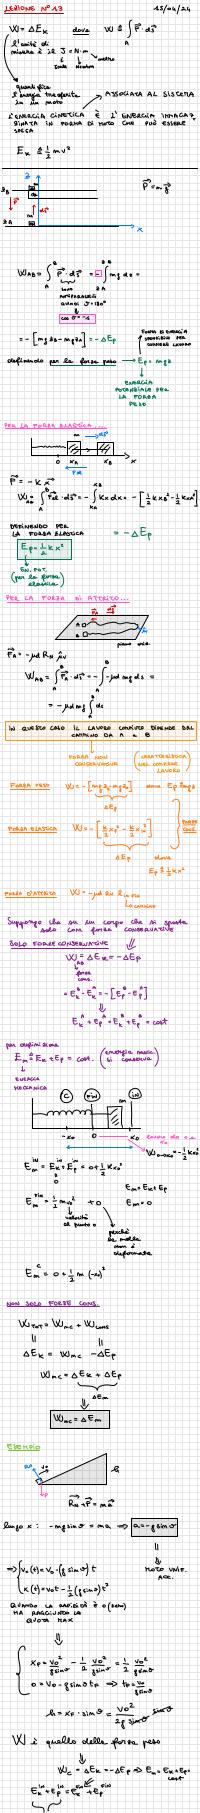 LEZIONE N°13 15/04/24
W = ΔEk dove W ≜ ∫ F⃗ · ds⃗
A
l'unità di
misura è il J = N·m → metro
Joule Newton
quantifica
l'energia trasferita
in un moto
ASSOCIATA AL SISTEMA
L'ENERGIA CINETICA È L'ENERGIA IMMAGAZ-
ZINATA IN FORMA DI MOTO CHE PUÒ ESSERE
Ek ≜ 1/2 mv²
z
zB
P⃗ ds⃗
zA
x
P⃗ = mg⃗
W_AB = ∫ P⃗ · ds⃗ = - ∫ mg dz =
sono
antiparalleli
quindi ϑ = 180°
cos ϑ = -1
= -[mg zB - mg zA] = -ΔEp
definendo per la forza peso → Ep = mgz
ENERGIA
POTENZIALE PER
LA FORZA
PESO
PER LA FORZA ELASTICA ...
m
0 xA xB x
F⃗ = -k x⃗
W_AB = ∫ F⃗el · ds⃗ = -∫ kx dx = -[1/2 k xB² - 1/2 k xA²]
DEFINENDO PER
LA FORZA ELASTICA = -ΔEp
Ep = 1/2 k x²
EN. POT.
(per la forza
elastica)
PER LA FORZA DI ATTRITO...
A
B
F⃗A = -μd RN
W_AB = ∫ F⃗A · ds⃗ = ∫ -μd mg ds =
= -μd mg ∫ ds
IN QUESTO CASO IL LAVORO COMPIUTO DIPENDE DAL
CAMMINO DA A a B
FORZA NON
CONSERVATIVA
(CARATTERISTICA
NEL COMPIERE
LAVORO)
FORZA PESO W = -[mgzB - mgzA] dove Ep ≜ mgz
ΔEp
FORZA ELASTICA W = -[k/2 xB² - k/2 xA²]
FORZE
CONS.
ΔEp dove
Ep ≜ 1/2 k x²
FORZA D'ATTRITO
cammino
Suppongo che su un corpo che si sposta
solo con forza CONSERVATIVE
SOLO FORZE CONSERVATIVE
W = ΔEk = -ΔEp
AB
forze
cons.
= Ek^B - Ek^A = -[Ep^B - Ep^A]
Ek^A + Ep^A = Ek^B + Ep^B = cost
per definizione
Em ≜ Ek + Ep = cost. (energia mecc.
si conserva)
ENERGIA
MECCANICA
C FIN IN
m
-x0 0 x0
Em^IN = Ek^IN + Ep^IN = 0 + 1/2 k x0²
0
Em = Ek + Ep
Em^FIN = 1/2 m v0² + 0
Em = 0
velocità
al punto 0
perché
la molla
non è
deformata
Em^C = 0 + 1/2 m (-x0)²
NON SOLO FORZE CONS.
W_TOT = W_NC + W_CONS
ΔEk = W_NC - ΔEp
W_NC = ΔEk + ΔEp
ΔEm
W_NC = ΔEm
ESEMPIO
h
R⃗N + P⃗ = ma⃗
lungo x: -mg sin ϑ = ma ⟹ a = -g sin ϑ
MOTO UNIF.
ACC.
⟹ Vx(t) = V0 - (g sin ϑ) t
x(t) = V0 t - 1/2 (g sin ϑ) t²
QUANDO LA RAPIDITÀ È 0 (zero)
HA RAGGIUNTO LA
QUOTA MAX
xF = V0²/g sin ϑ - 1/2 V0²/g sin ϑ = 1/2 V0²/g sin ϑ
0 = V0 - g sin ϑ tF ⟹ tF = V0/g sin ϑ
h = xF · sin ϑ = V0²/2g sin ϑ sin ϑ
W è quello della forza peso
WC = ΔEk = -ΔEp ⟹ Em = Ek + Ep =
cost
Ek^IN + Ep^IN = Ek^FIN + Ep^FIN